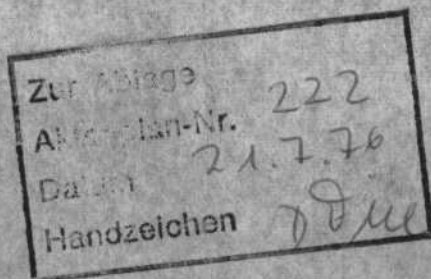 Zur Ablage
Aktenplan-Nr. 222
Datum 21.7.76
Handzeichen